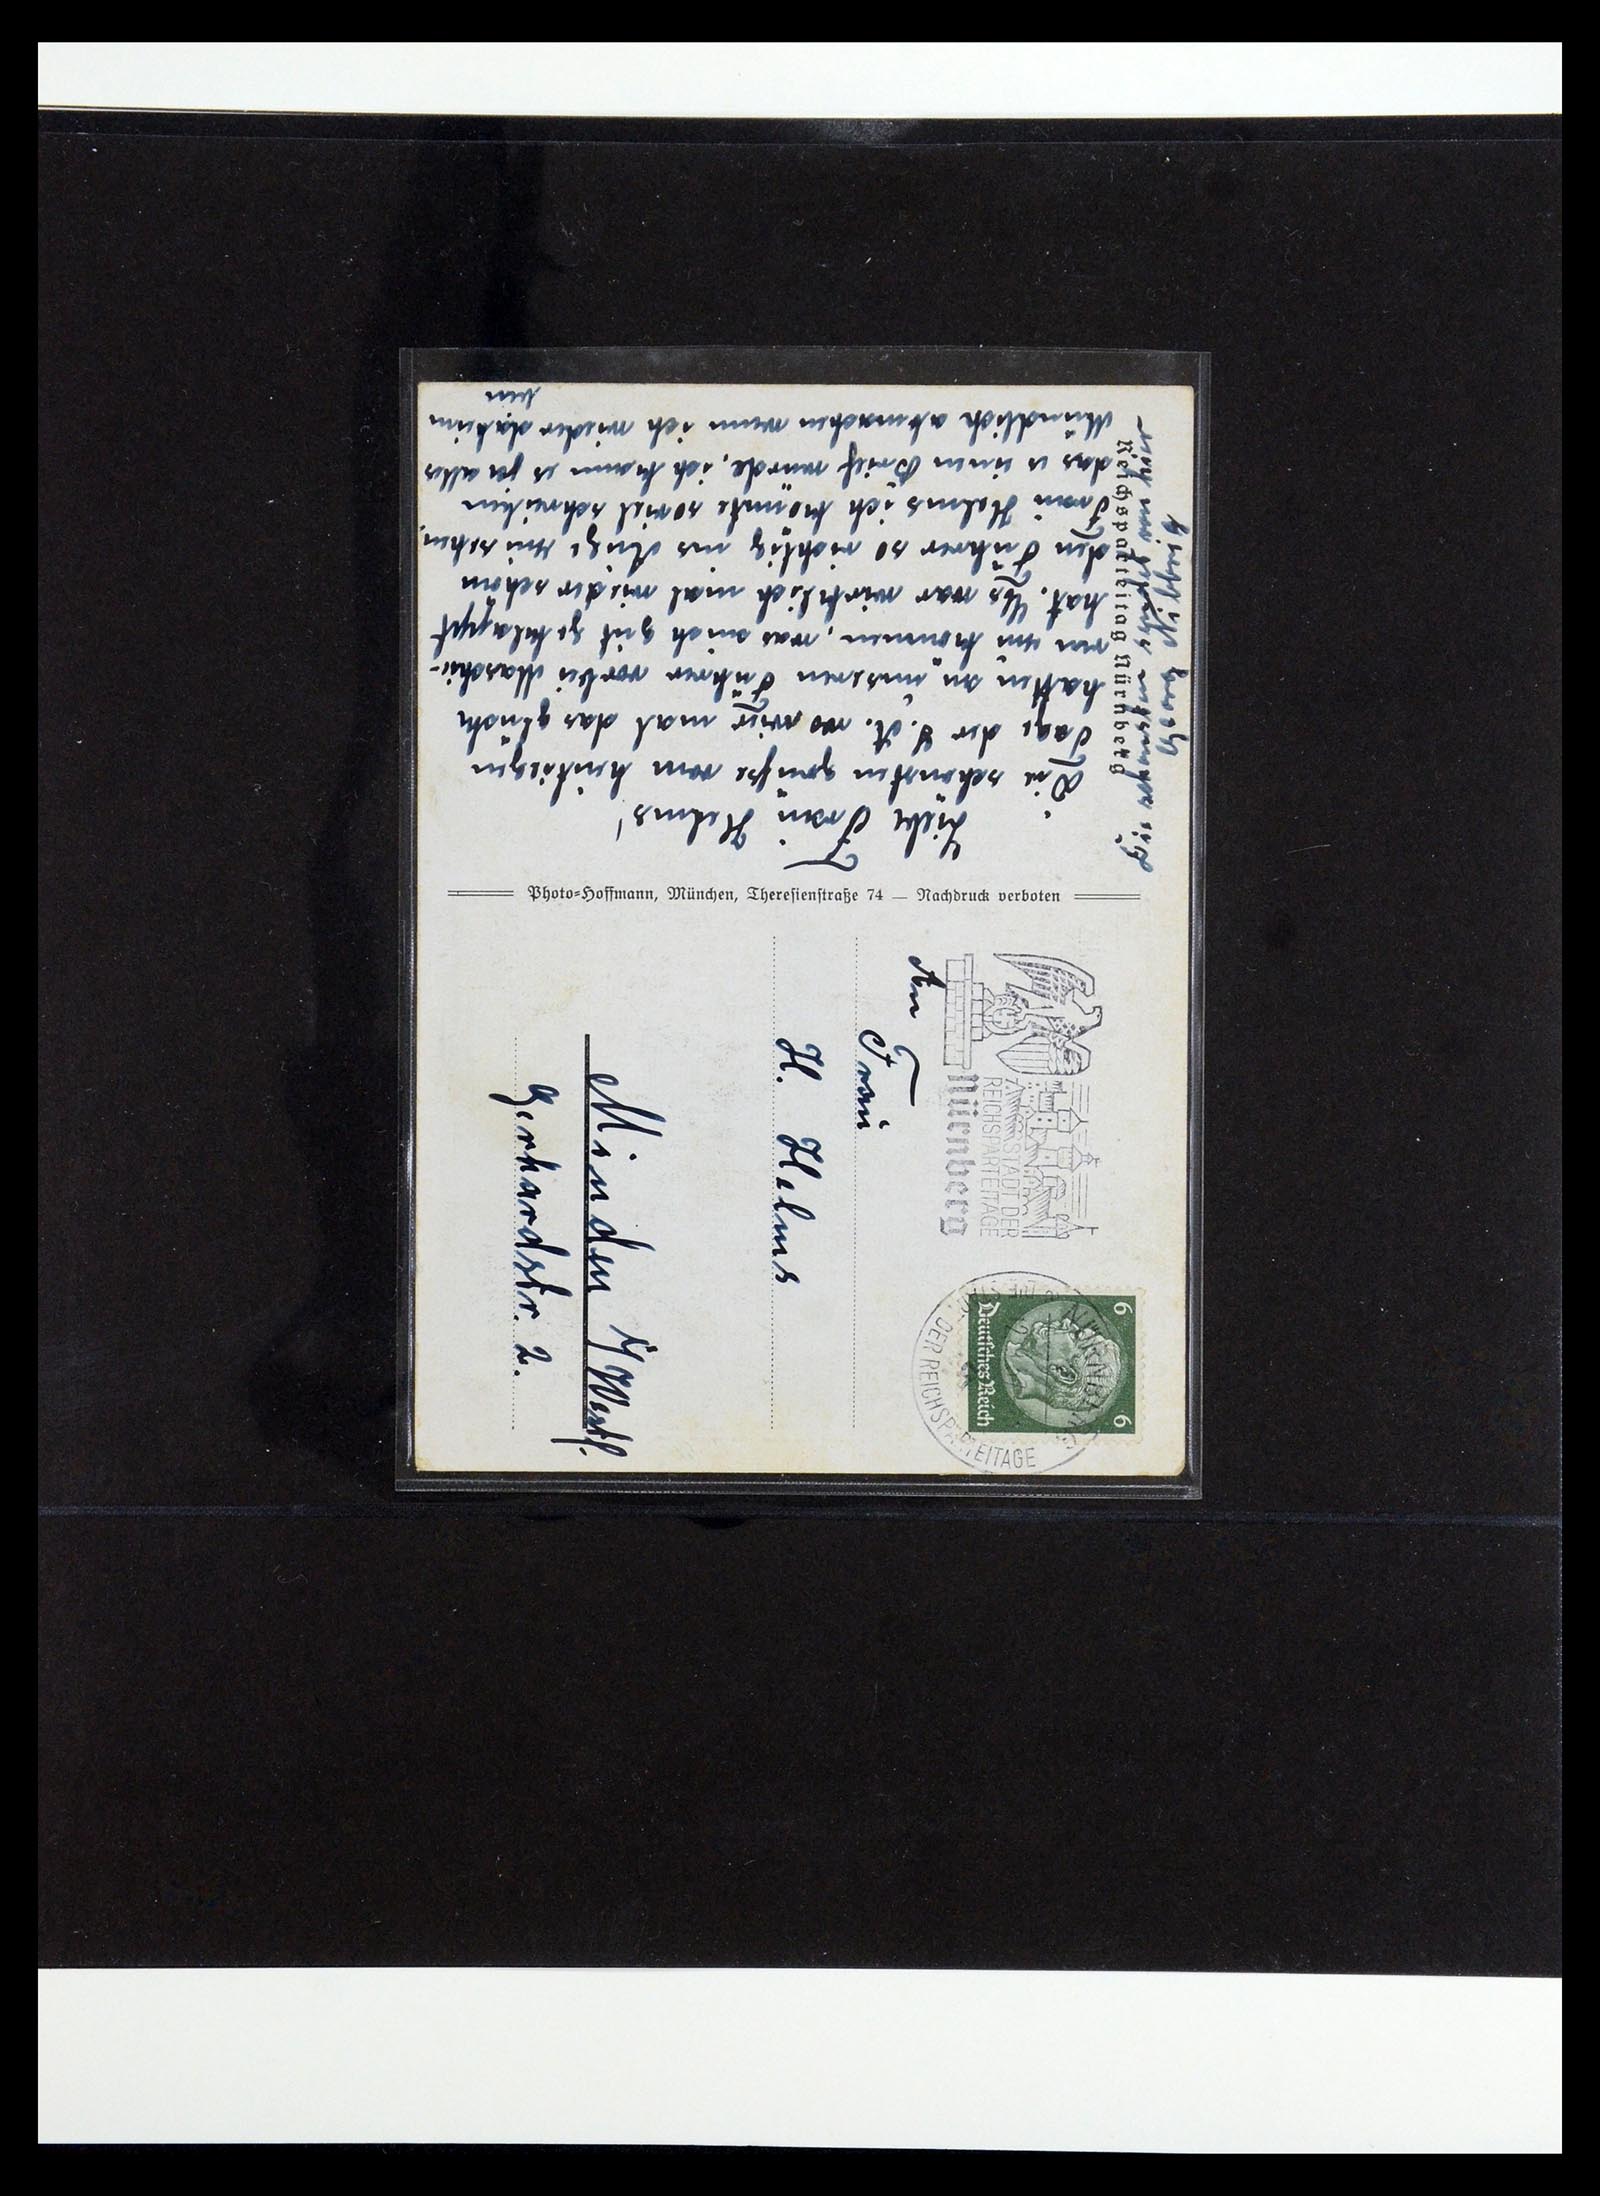 Liebe Frau Helms!
Die schönsten grüsse vom heutiegen
Tage der S.A. wo wier mal das glück
hatten an unseren Führer vorbei Maschie-
ren zu können, was auch gut geklappt
hat. Es war wirklich mal wieder schön
den Führer so richtig ins Auge zu sehen.
Frau Helms ich könnte soviel schreiben
das es einen Brief wurde, ich kann es ja alles
Mündlich abmachen wenn ich wieder daheim
bin
Reichsparteitag Nürnberg
Photo-Hoffmann, München, Theresienstraße 74 — Nachdruck verboten
Nürnberg
STADT DER
REICHSPARTEITAGE
NÜRNBERG
DER REICHSPARTEITAGE
6 6
Deutsches Reich
An
Frau
H. Helms
Minden i/Westf.
Gerhardstr. 2.